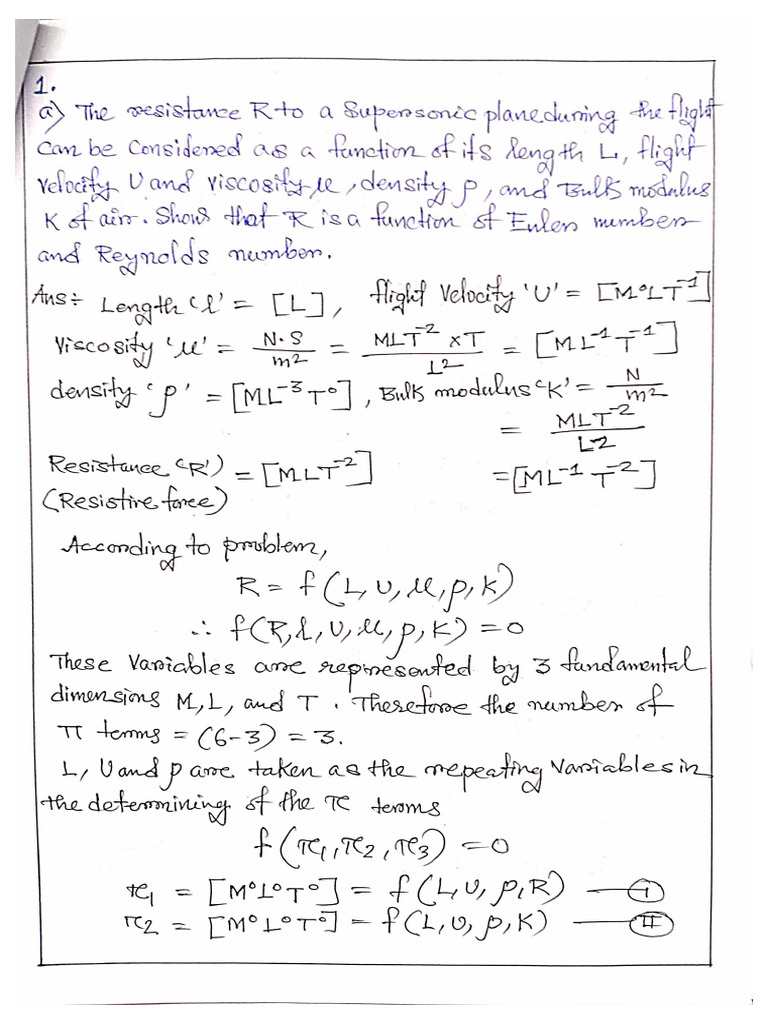 1.
a) The resistance R to a Supersonic plane during the flight
can be Considered as a function of its length L, flight
velocity U and viscosity μ, density ρ, and Bulk modulus
K of air. Show that R is a function of Euler number
and Reynolds number.
Ans:- Length 'l' = [L], flight Velocity 'U' = [M⁰LT⁻¹]
Viscosity 'μ' = N·S/m² = MLT⁻² × T/L² = [ML⁻¹T⁻¹]
density 'ρ' = [ML⁻³T⁰], Bulk modulus 'K' = N/m²
= MLT⁻²/L²
Resistance ('R') = [MLT⁻²] = [ML⁻¹T⁻²]
(Resistive force)
According to problem,
R = f(L, U, μ, ρ, K)
∴ f(R, l, U, μ, ρ, K) = 0
These Variables are represented by 3 fundamental
dimensions M, L, and T. Therefore the number of
π terms = (6-3) = 3.
L, U and ρ are taken as the repeating Variables in
the determining of the π terms
f(π₁, π₂, π₃) = 0
π₁ = [M⁰L⁰T⁰] = f(L, U, ρ, R) — I
π₂ = [M⁰L⁰T⁰] = f(L, U, ρ, K) — II